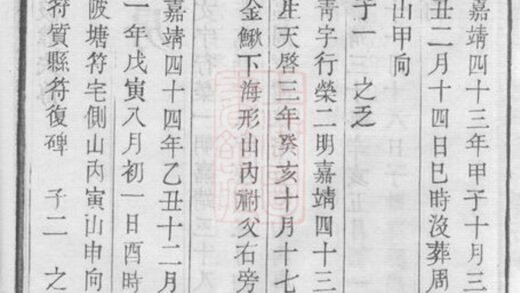 嘉靖四十三年甲子十月三
丑二月十四日巳時没葬周
山甲向
子一 之
靑字行榮二明嘉靖四十三
生天啓三年癸亥十月十七
金鰍下海形山內祔父右旁
嘉靖四十四年乙丑十二月
一年戊寅八月初一日酉時
陂塘符宅側山內寅山申向
符質縣符復碑 子二 之